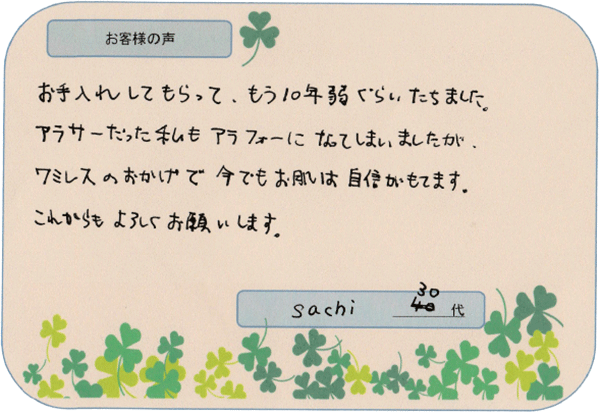 お客様の声
お手入れしてもらって、もう10年弱ぐらいたちました。
アラサーだった私もアラフォーになってしまいましたが、
ワミレスのおかげで今でもお肌は自信がもてます。
これからもよろしくお願いします。
30
sachi 40 代